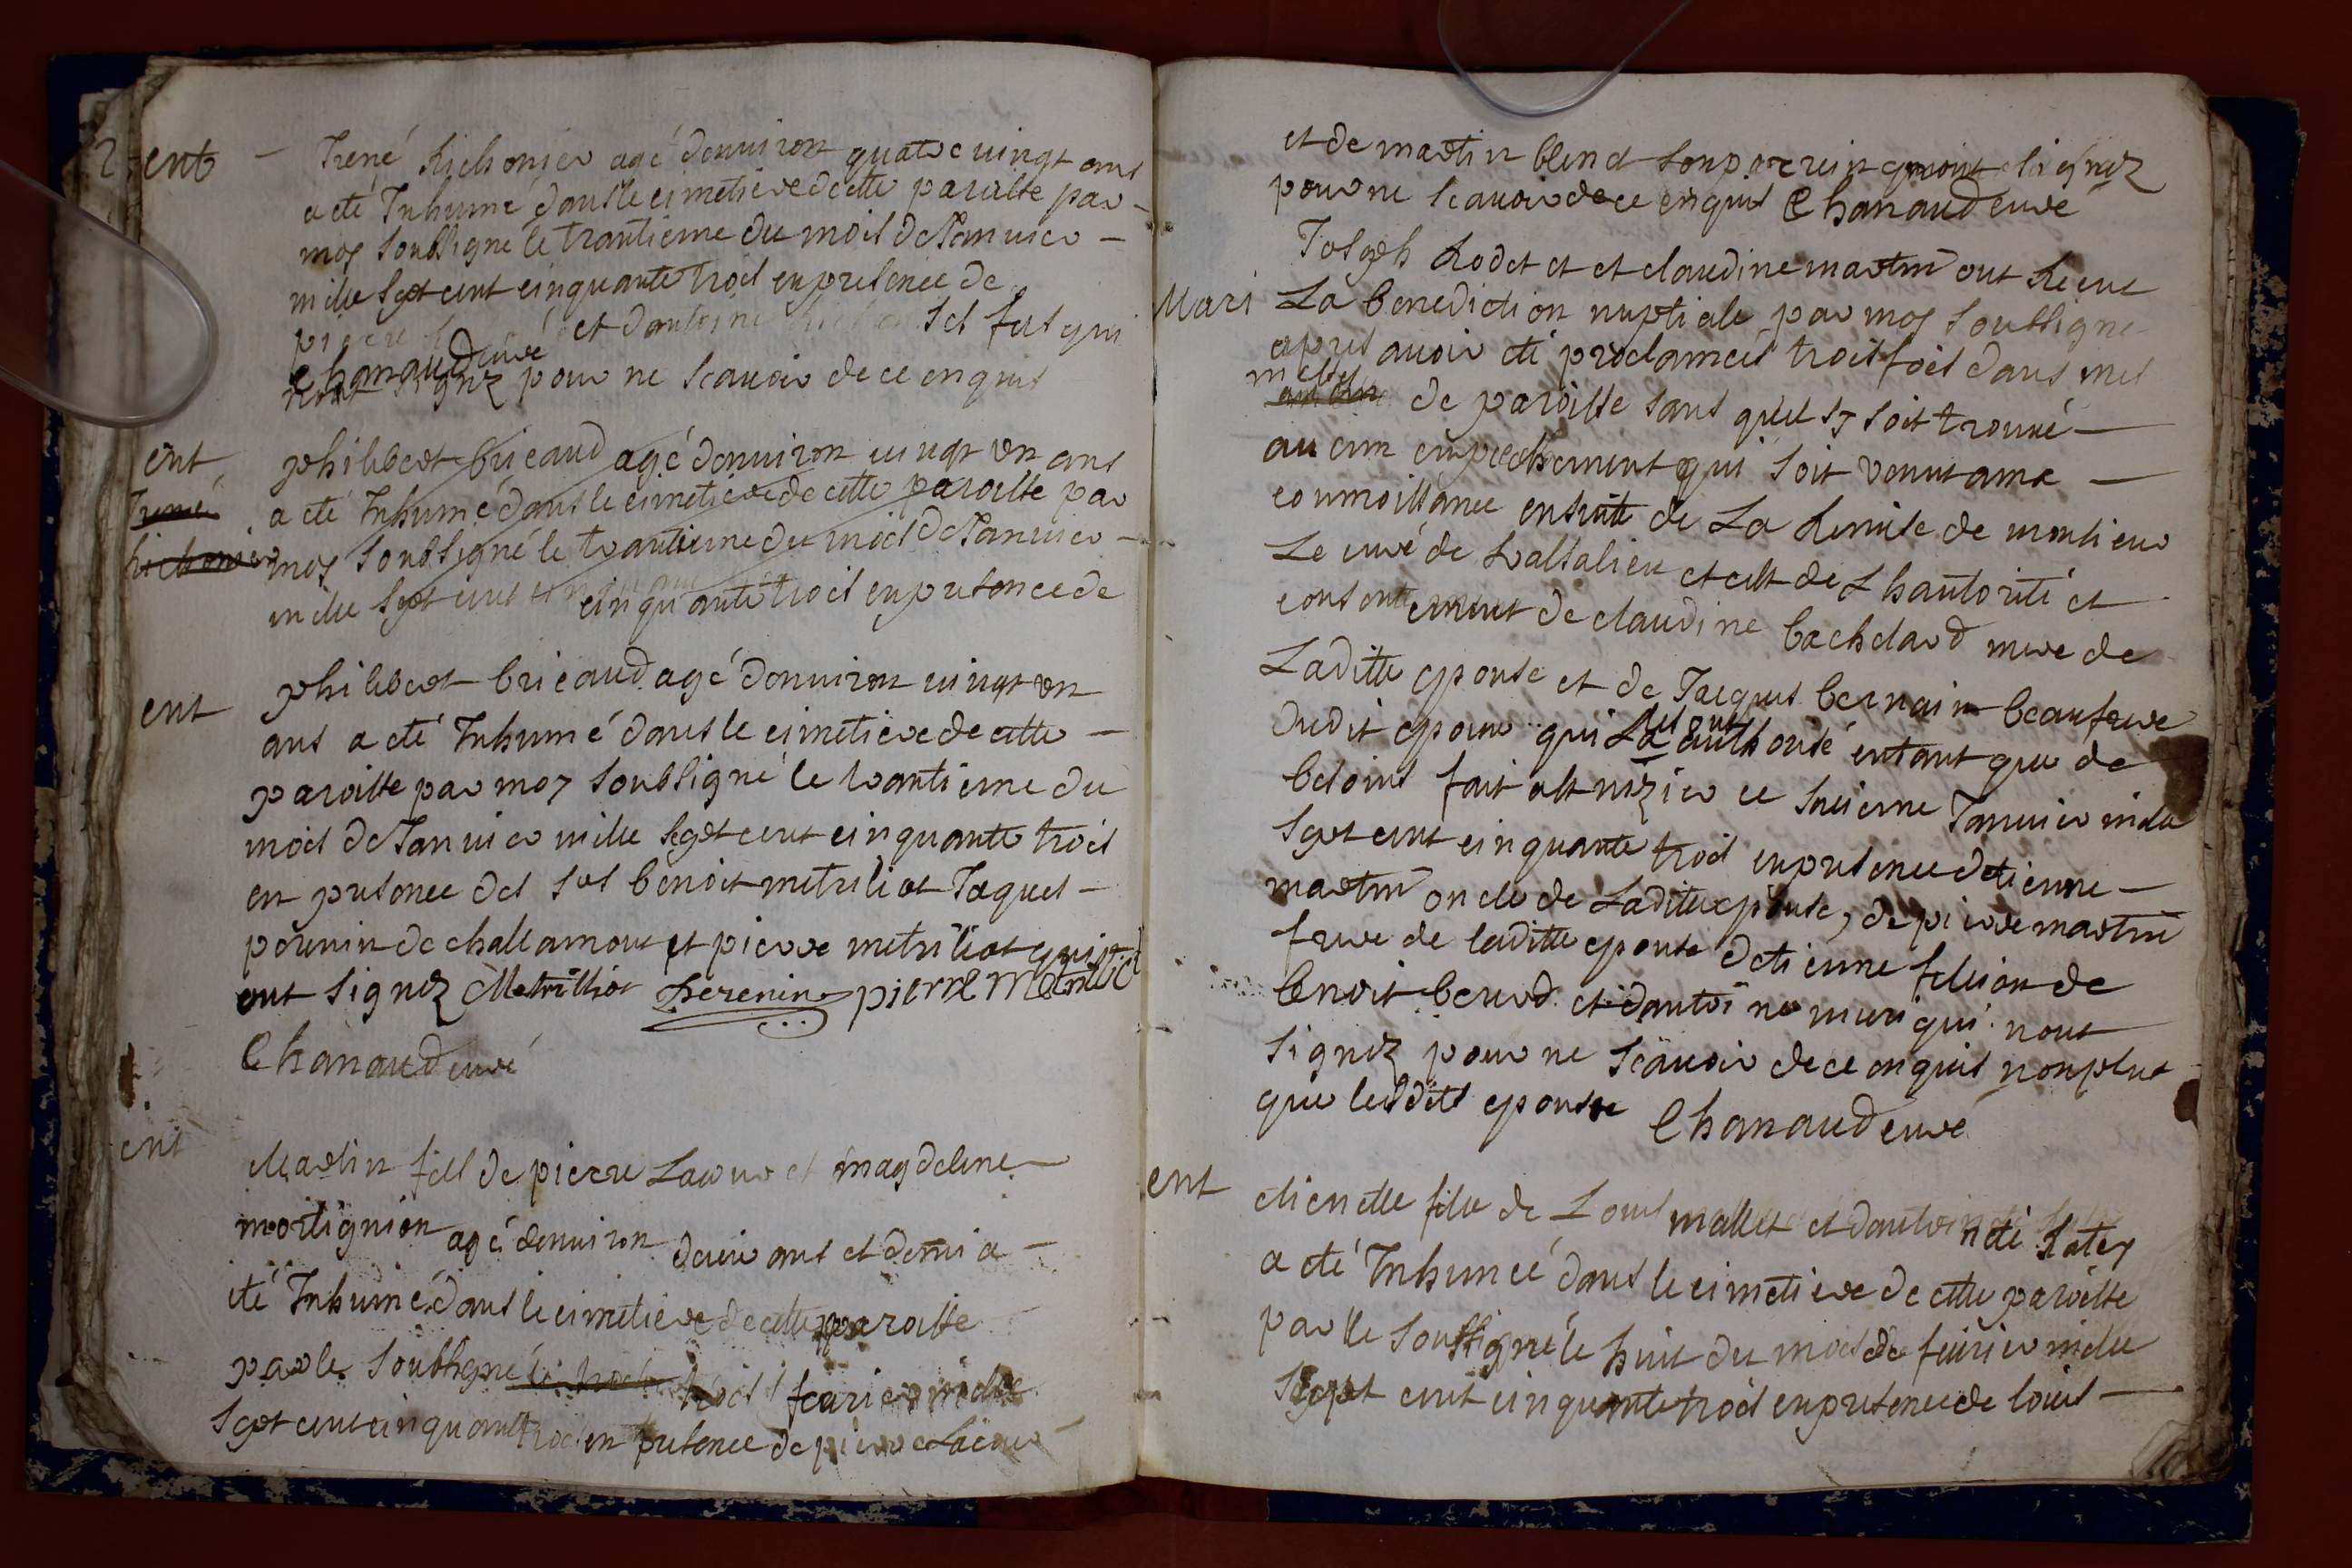 2 ent – Irené Richonier agé denuiron quatre uingt ans
a eté Inhumé dans le cimetiere de cette paroisse par –
moy soussigné le trantieme du mois de Januier –
mille sept cent cinquante trois en presence de
pierre et dantoine ses fils qui
Chanaud curé
n'ont signez pour ne scauoir de ce enquis
ent philibert bricaud agé denuiron uingt un ans
Irené a eté Inhumé dans le cimetiere de cette paroisse par
Richonier moy soussigné le trantieme du mois de Januier –
mille sept cent cinquante trois en presence de
ent philibert bricaud agé denuiron uingt un
ans a eté Inhumé dans le cimetiere de cette –
paroisse par moy soussigné le trantieme du
mois de Januier mille sept cent cinquante trois
en presence des srs benoit metrilliot Jaques –
perenin de challamont et pierre metrilliot qui
ont signez Metrilliot Perenin pierre Metrilliot
Chanaud curé
ent Martin fils de pierre Lacour et magdelene –
mortignion agé denuiron deux ans et demi a –
eté Inhumé dans le cimetiere de cette paroisse
par le soussigné trois feurier mille
sept cent cinquante trois en presence de pierre Lacour –
et de martin blend son parrein qui n'ont signez
pour ne scauoir de ce enquis Chanaud curé
Joseph Rodet et et claudine martin ont Receu
Mari La benediction nuptiale par moy soussigné
apres auoir eté proclameés trois fois dans mes
messes de paroisse sans qu'il sy soit trouué –
aucun empechement qui soit venut a ma –
connoissance ensuitte de La Remise de monsieur
Le curé de Lassalieu et cest de L'hautorité et
consentement de claudine bachelard mere de
Laditte epouse et de Jacques bernain beaufrere
dudit epoux qui Les ont authorisé entant que de
besoins fait a st nizier ce Januier mille
sept cent cinquante trois en presence detienne –
martin oncle de Laditte epouse, de pierre martin
frere de laditte epouse detienne fillion de
benoit berrod et dantoine muri qui n'ont
signez pour ne scauoir de ce enquis nonplus
que lesdits epouse Chanaud curé
ent etiennette fille de Louis mallet et dantoinette Ratey
a eté Inhumeé dans le cimetiere de cette paroisse
par le soussigné le huit du mois de feurier mille
sept cent cinquante trois en presence de louis –